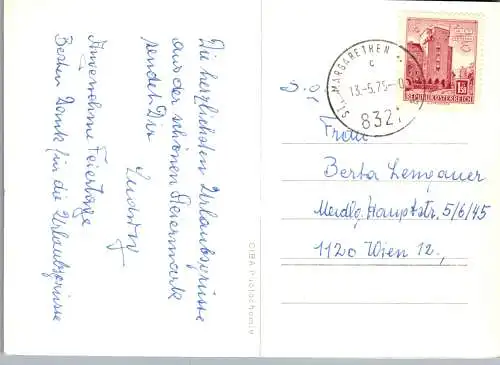 Die herzlichsten Urlaubsgrüsse
aus der schönen Steiermark
sendet Dir
Ludwig
Angenehme Feiertage
Besten Dank für die Urlaubsgrüsse
CIBA Photochemie
ST. MARGARETHEN
c
13.-5.75-0
8321
1.50
REPUBLIK ÖSTERREICH
S.g.
Frau
Berta Lengauer
Meidlg. Hauptstr. 5/6/45
1120 Wien 12,